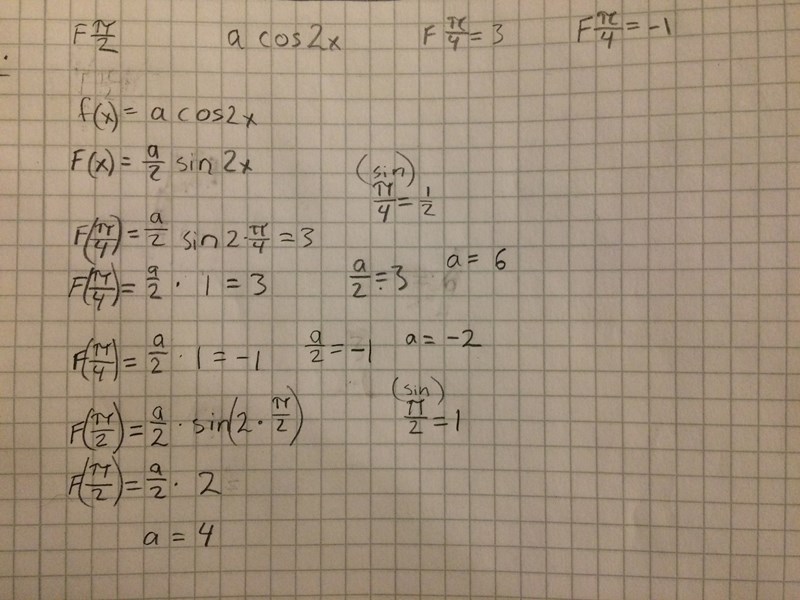 F π/2 a cos2x F π/4 = 3 F π/4 = -1
f(x) = a cos2x
F(x) = a/2 sin 2x
(sin)
π/4 = 1/2
F(π/4) = a/2 sin 2·π/4 = 3
F(π/4) = a/2 · 1 = 3 a/2 = 3 a = 6
F(π/4) = a/2 · 1 = -1 a/2 = -1 a = -2
(sin)
F(π/2) = a/2 · sin(2 · π/2) π/2 = 1
F(π/2) = a/2 · 2
a = 4